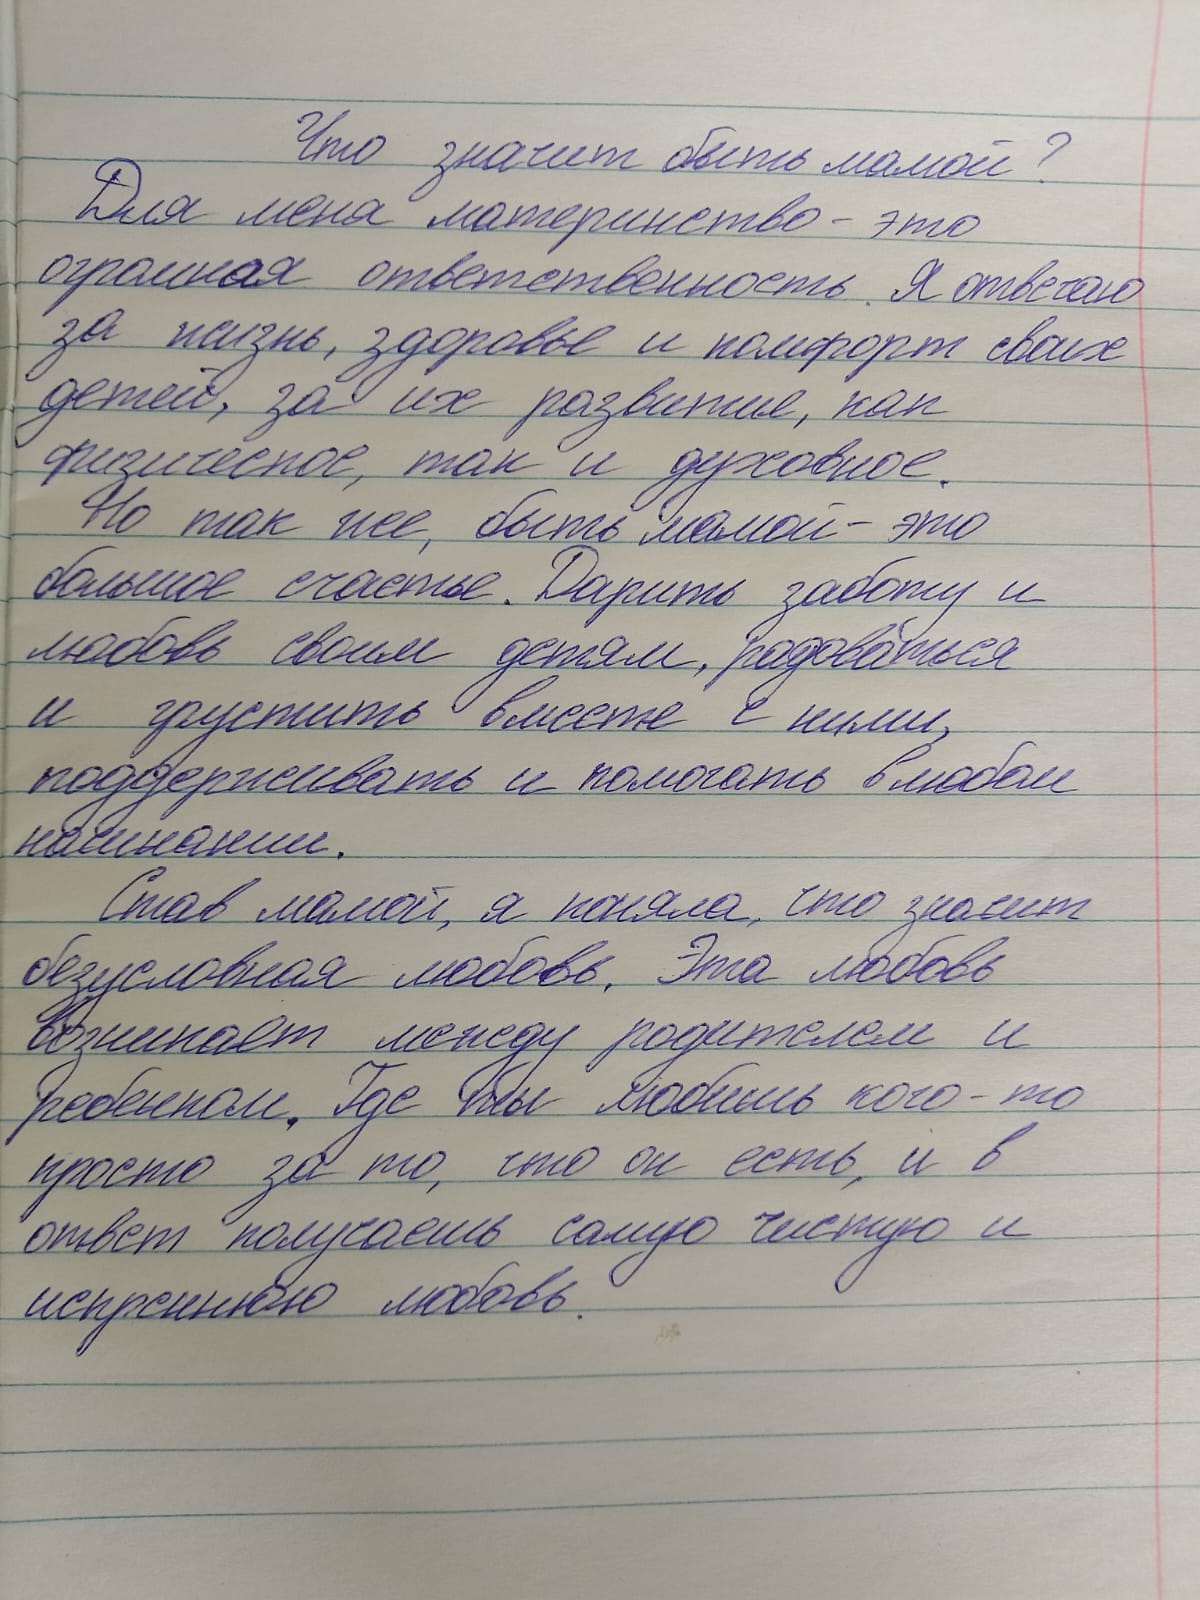 Что значит быть мамой?
Для меня материнство - это
огромная ответственность. Я отвечаю
за жизнь, здоровье и комфорт своих
детей, за их развитие, как
физическое, так и духовное.
Но так же, быть мамой - это
большое счастье. Дарить заботу и
любовь своим детям, радоваться
и грустить вместе с ними,
поддерживать и помогать в любом
начинании.
Став мамой, я поняла, что значит
безусловная любовь. Эта любовь
возникает между родителем и
ребенком. Где ты любишь кого-то
просто за то, что он есть, и в
ответ получаешь самую чистую и
искреннюю любовь.